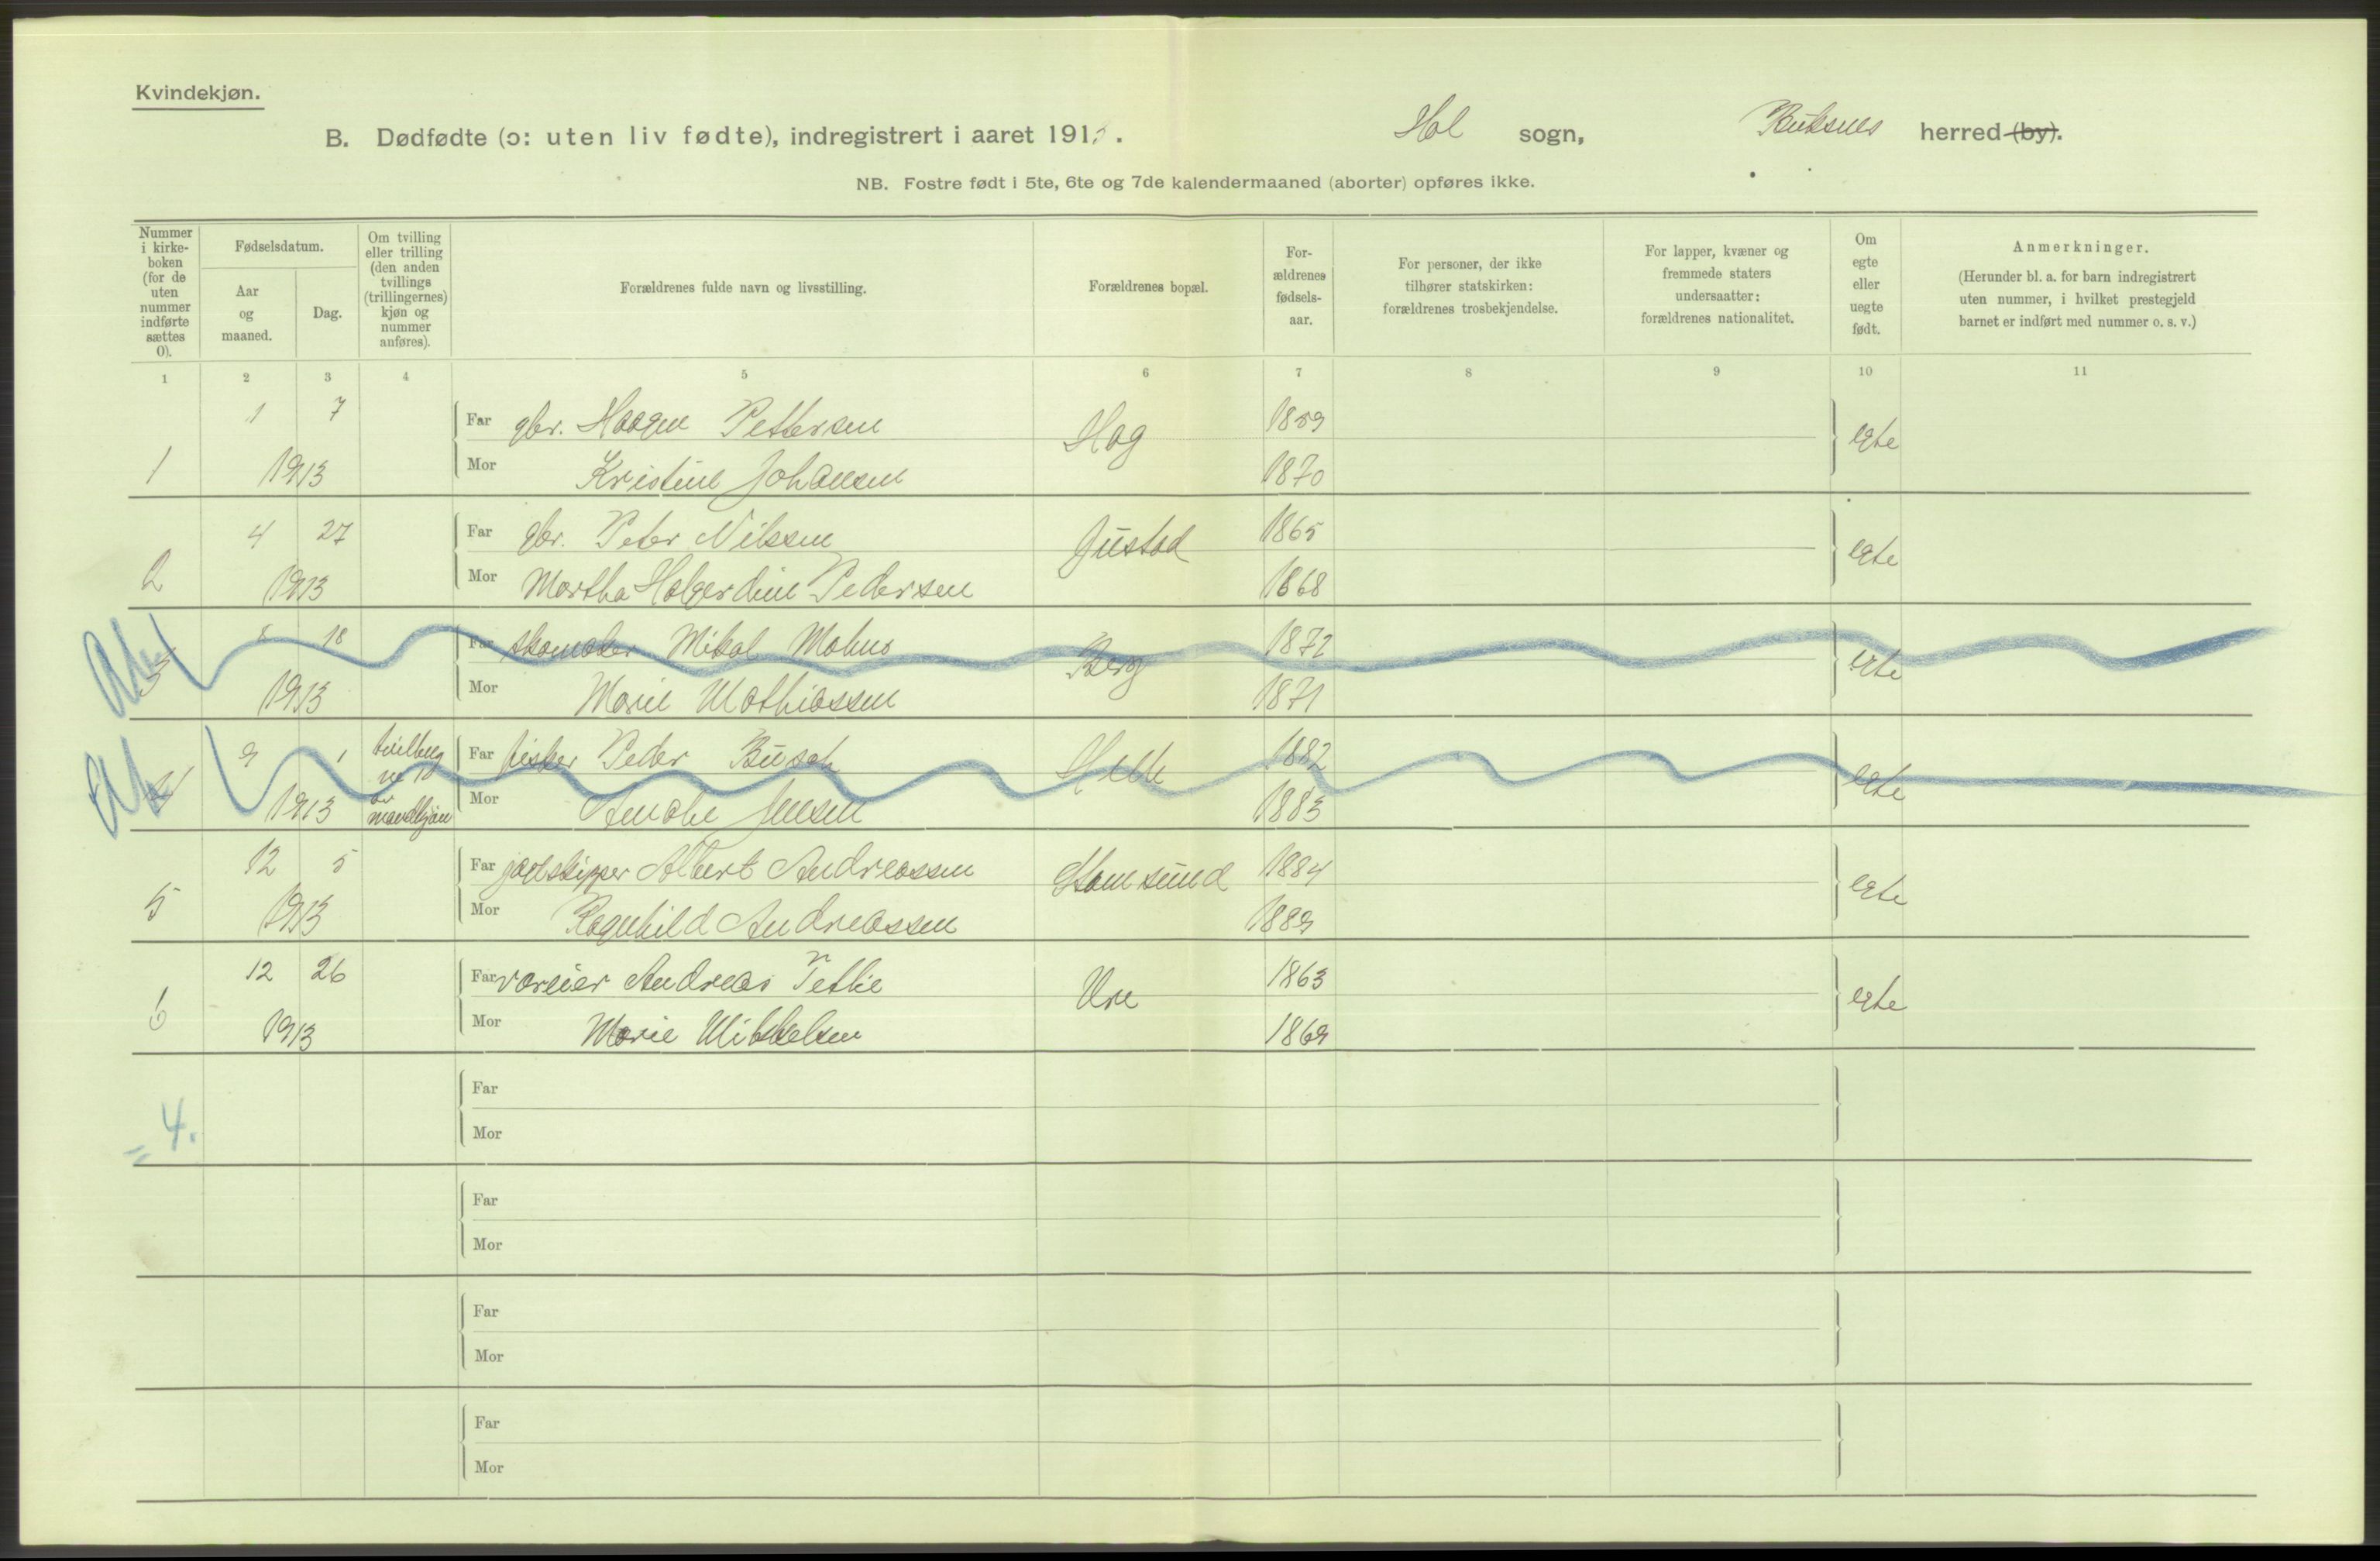 Kvindekjøn.
B. Dødfødte (ɔ: uten liv fødte), indregistrert i aaret 1913. Hol sogn, Buksnes herred (by).
NB. Fostre født i 5te, 6te og 7de kalendermaaned (aborter) opføres ikke.
Nummer
i kirke-
boken
(for de
uten
nummer
indførte
sættes
0).
Fødselsdatum.
Aar
og
maaned.
Dag.
Om tvilling
eller trilling
(den anden
tvillings
(trillingernes)
kjøn og
nummer
anføres).
Forældrenes fulde navn og livsstilling.
Forældrenes bopæl.
For-
ældrenes
fødsels-
aar.
For personer, der ikke
tilhører statskirken:
forældrenes trosbekjendelse.
For lapper, kvæner og
fremmede staters
undersaatter:
forældrenes nationalitet.
Om
egte
eller
uegte
født.
Anmerkninger.
(Herunder bl. a. for barn indregistrert
uten nummer, i hvilket prestegjeld
barnet er indført med nummer o. s. v.)
1 2 3 4 5 6 7 8 9 10 11
1 7 Far gbr. Haagen Pettersen Hag 1859 egte
1 1913 Mor Kristine Johansen 1870
4 27 Far gbr. Peter Nilssen Justad 1865 egte
2 1913 Mor Martha Halgerdine Pedersen 1868
8 18 Far skomaker Mikal Mohus Berg 1872 egte
3 1913 Mor Marie Mathiassen 1871
9 1 tvilling Far fisker Peder Busch Helle 1882 egte
4 1913 mandkjøn Mor Amalie Jensen 1883
12 5 Far Albert Andreassen Stamsund 1884 egte
5 1913 Mor Ragnhild Andreassen 1889
12 26 Far Andreas Tettie Ure 1863 egte
6 1913 Mor Marie Mikkelsen 1869
Far
= 4. Mor
Far
Mor
Far
Mor
Far
Mor